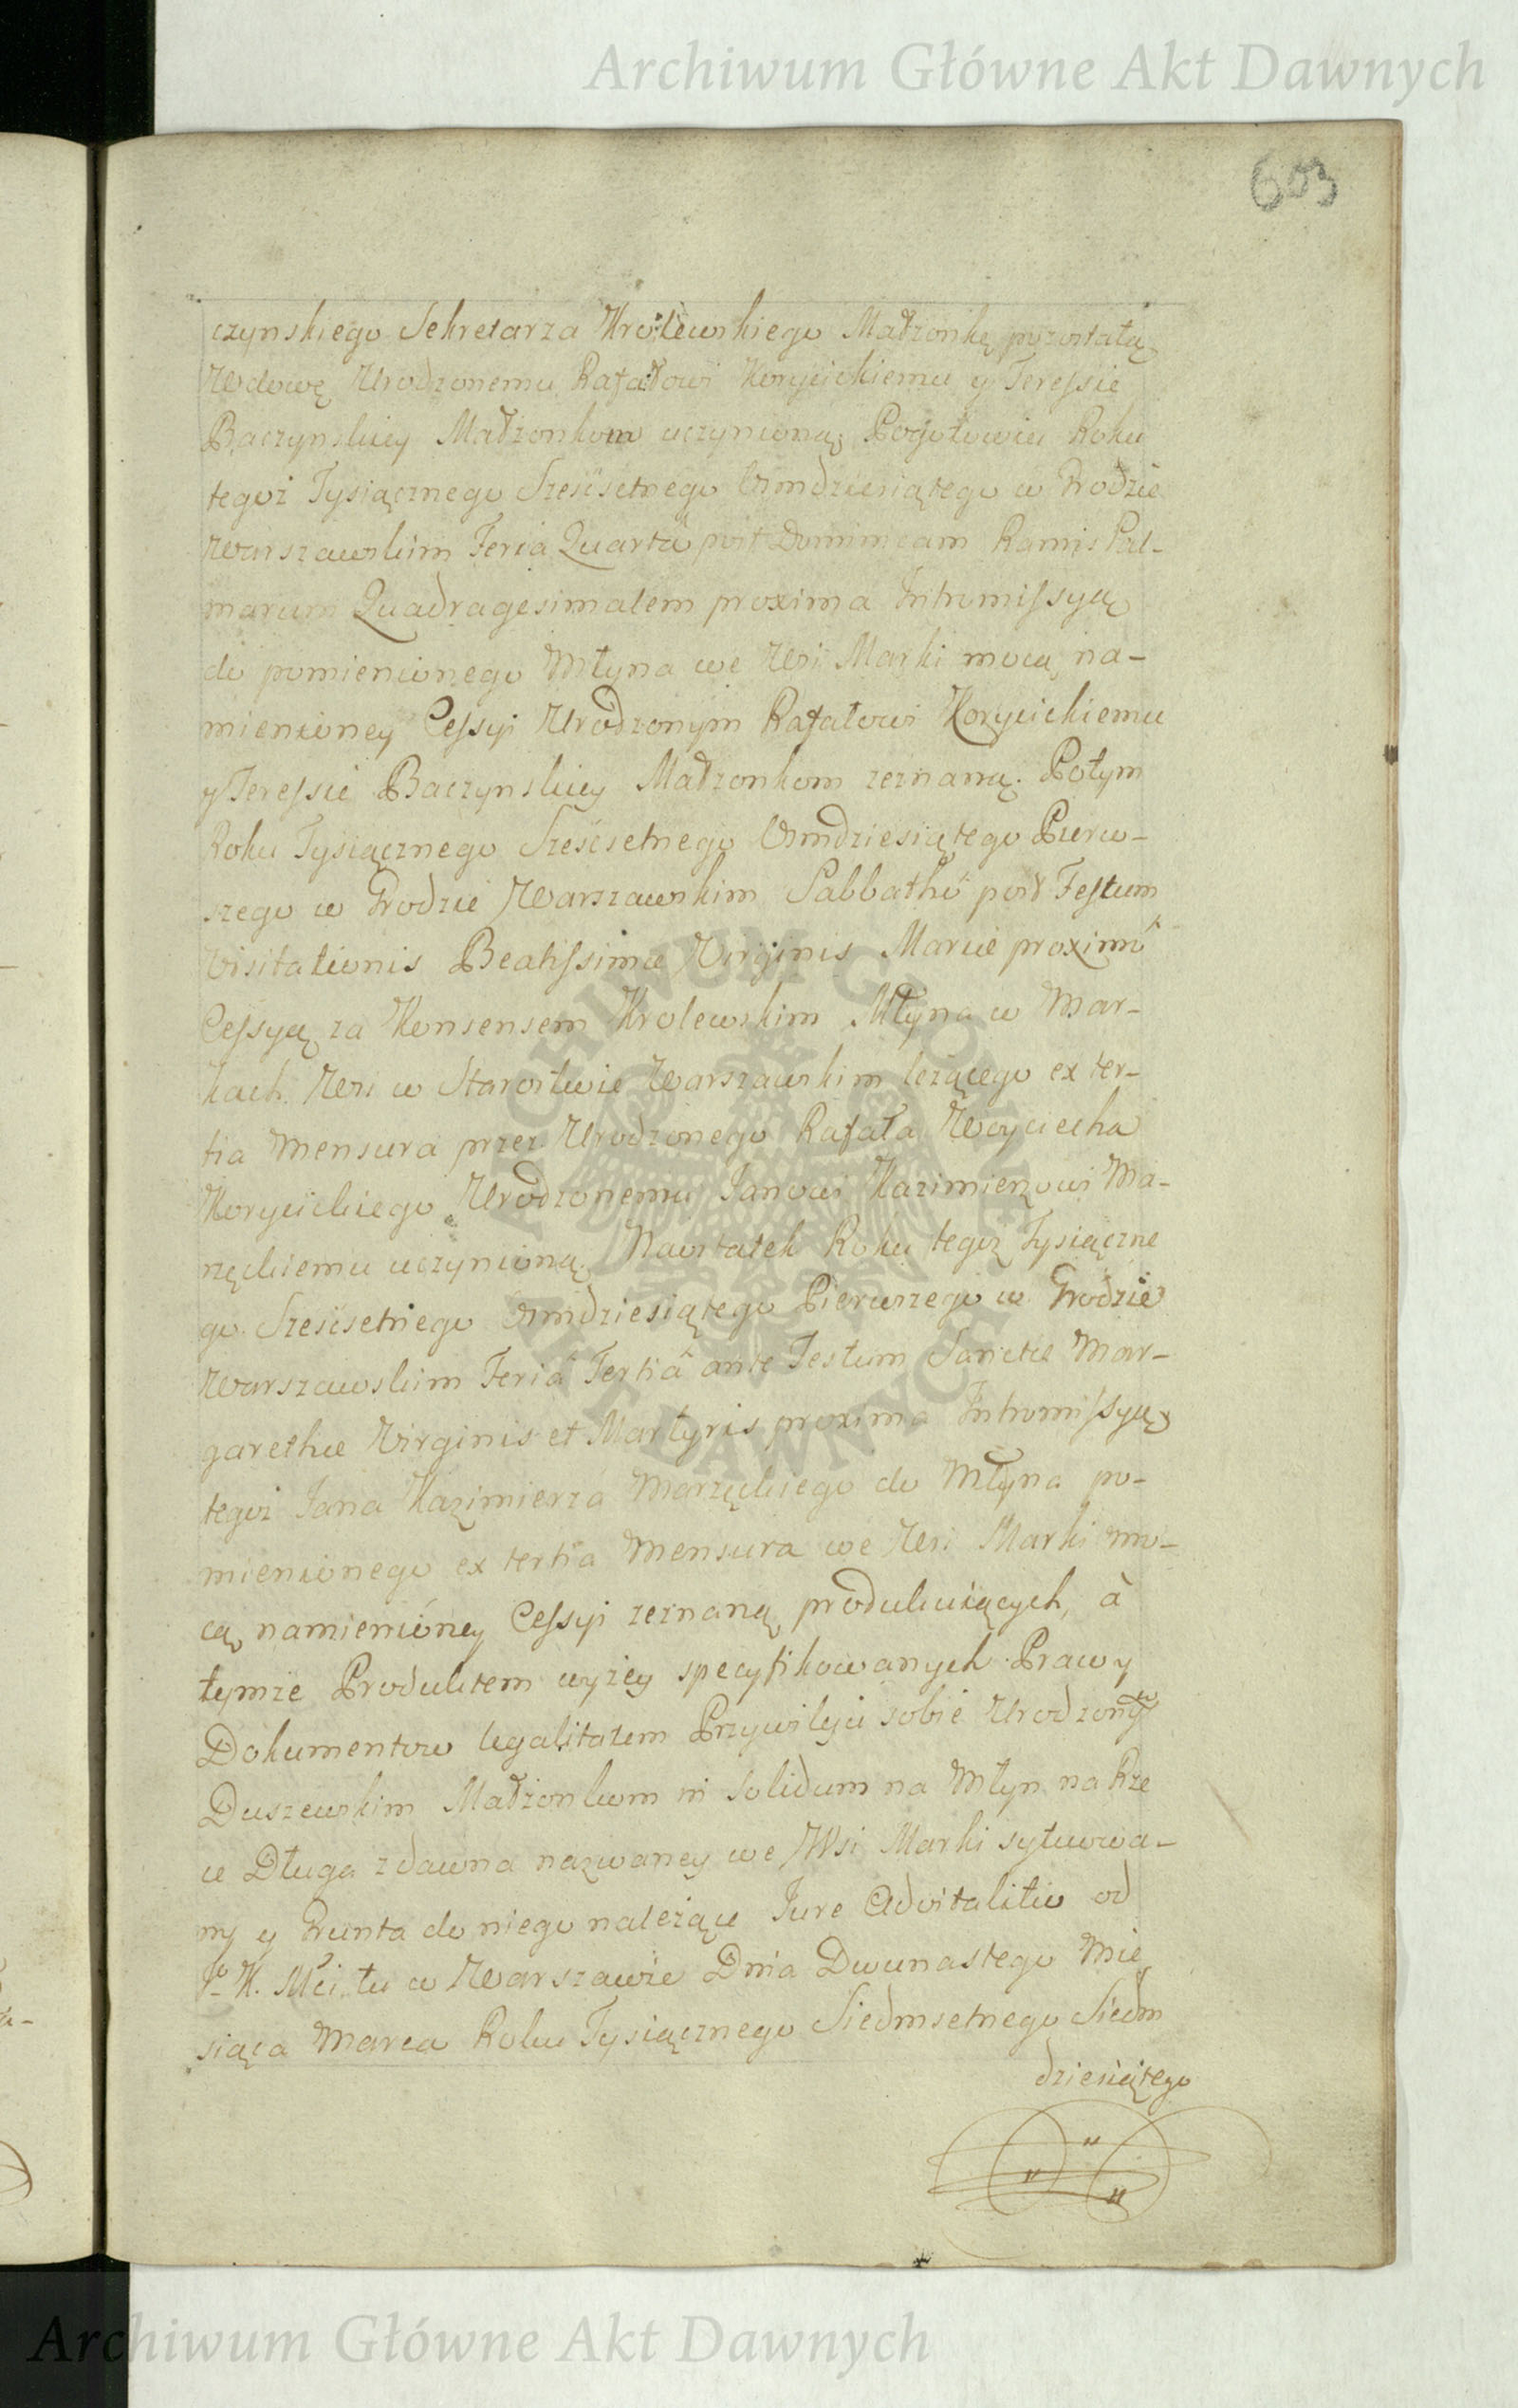 Archiwum Główne Akt Dawnych
603
czynskiego Sekretarza Krolewskiego Małżonkę pozostałą
Wdowę Urodzonemu Rafałowi Korycickiemu y Teressie
Baczynskiey Małżonkom uczynioną; Pogotowiu Roku
tegoż Tysiącznego Szescsetnego Osmdziesiątego w Grodzie
Warszawskim Feria Quarta post Dominicam Ramis Pal-
marum Quadragesimalem proxima Intromissyą
do pomienionego Młyna we Wsi Marki mocą na-
mienioney Cessyi Urodzonym Rafałowi Korycickiemu
y Teressie Baczynskiey Małżonkom zeznaną. Potym
Roku Tysiącznego Szescsetnego Osmdziesiątego Pierw-
szego w Grodzie Warszawskim Sabbathô post Festum
Visitationis Beatissimae Virginis Mariae proximô
Cessyą za Konsensem Krolewskim Młyna w Mar-
kach Wsi w Starostwie Warszawskim leżącego ex ter-
tia Mensura przez Urodzonego Rafała Woyciecha
Korycickiego Urodzonemu Janowi Kazimierzowi Ma-
rzęckiemu uczynioną. Naostatek Roku tegoż Tysiączne
go Szescsetnego Osmdziesiątego Pierwszego w Grodzie
Warszawskim Feriâ Tertiâ ante Festum Sanctae Mar-
garethae Virginis et Martyris proxima Intromissyą
tegoż Jana Kazimierza Marzęckiego do Młyna po-
mienionego ex tertia Mensura we Wsi Marki mo-
cą namienioney Cessyi zeznaną produkuiących, à
tymże Produktem wyżey specyfikowanych Praw y
Dokumentow legalitatem Przywileiu sobie Urodzonym
Duszewskim Małżonkom in Solidum na Młyn na Rze
ce Długa zdawna nazwaney we Wsi Marki sytuowa-
ny y Grunta do niego należące Jure Advitalitio od
J. K. Mci tu w Warszawie Dnia Dwunastego Mie
siąca Marca Roku Tysiącznego Siedmsetnego Siedm
dziesiątego
ARCHIWUM GŁÓWNE
AKT DAWNYCH
Archiwum Główne Akt Dawnych